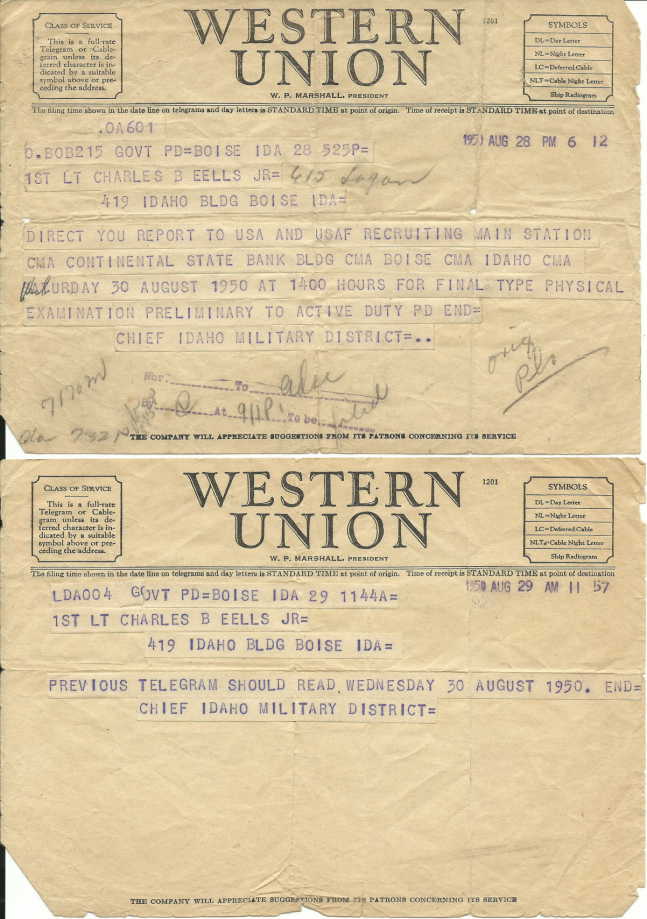 CLASS OF SERVICE
This is a full-rate
Telegram or Cable-
gram unless its de-
ferred character is in-
dicated by a suitable
symbol above or pre-
ceding the address.
WESTERN
UNION
W. P. MARSHALL, PRESIDENT
1201
SYMBOLS
DL=Day Letter
NL=Night Letter
LC=Deferred Cable
NLT=Cable Night Letter
Ship Radiogram
The filing time shown in the date line on telegrams and day letters is STANDARD TIME at point of origin. Time of receipt is STANDARD TIME at point of destination
.OA601
O.BOB215 GOVT PD=BOISE IDA 28 525P=
1950 AUG 28 PM 6 12
1ST LT CHARLES B EELLS JR= 415 Logan
419 IDAHO BLDG BOISE IDA=
DIRECT YOU REPORT TO USA AND USAF RECRUITING MAIN STATION
CMA CONTINENTAL STATE BANK BLDG CMA BOISE CMA IDAHO CMA
TURDAY 30 AUGUST 1950 AT 1400 HOURS FOR FINAL TYPE PHYSICAL
EXAMINATION PRELIMINARY TO ACTIVE DUTY PD END=
CHIEF IDAHO MILITARY DISTRICT=..
orig
Pls
To
At To be
THE COMPANY WILL APPRECIATE SUGGESTIONS FROM ITS PATRONS CONCERNING ITS SERVICE
CLASS OF SERVICE
This is a full-rate
Telegram or Cable-
gram unless its de-
ferred character is in-
dicated by a suitable
symbol above or pre-
ceding the address.
WESTERN
UNION
W. P. MARSHALL, PRESIDENT
1201
SYMBOLS
DL=Day Letter
NL=Night Letter
LC=Deferred Cable
NLT=Cable Night Letter
Ship Radiogram
The filing time shown in the date line on telegrams and day letters is STANDARD TIME at point of origin. Time of receipt is STANDARD TIME at point of destination
LDA004 GOVT PD=BOISE IDA 29 1144A=
1950 AUG 29 AM 11 57
1ST LT CHARLES B EELLS JR=
419 IDAHO BLDG BOISE IDA=
PREVIOUS TELEGRAM SHOULD READ WEDNESDAY 30 AUGUST 1950. END=
CHIEF IDAHO MILITARY DISTRICT=
THE COMPANY WILL APPRECIATE SUGGESTIONS FROM ITS PATRONS CONCERNING ITS SERVICE